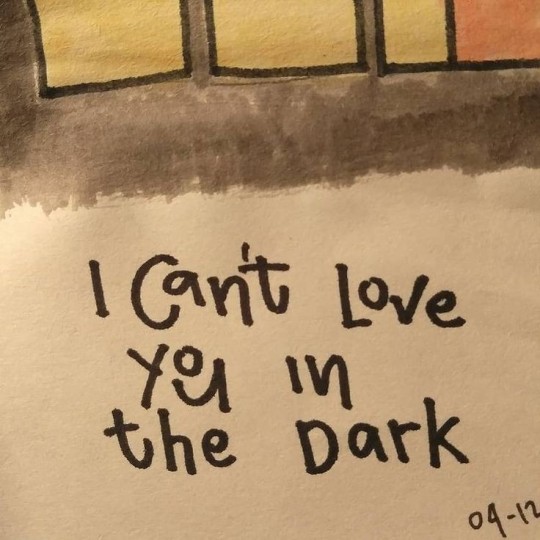 I Can't Love
you in
the Dark
09-12